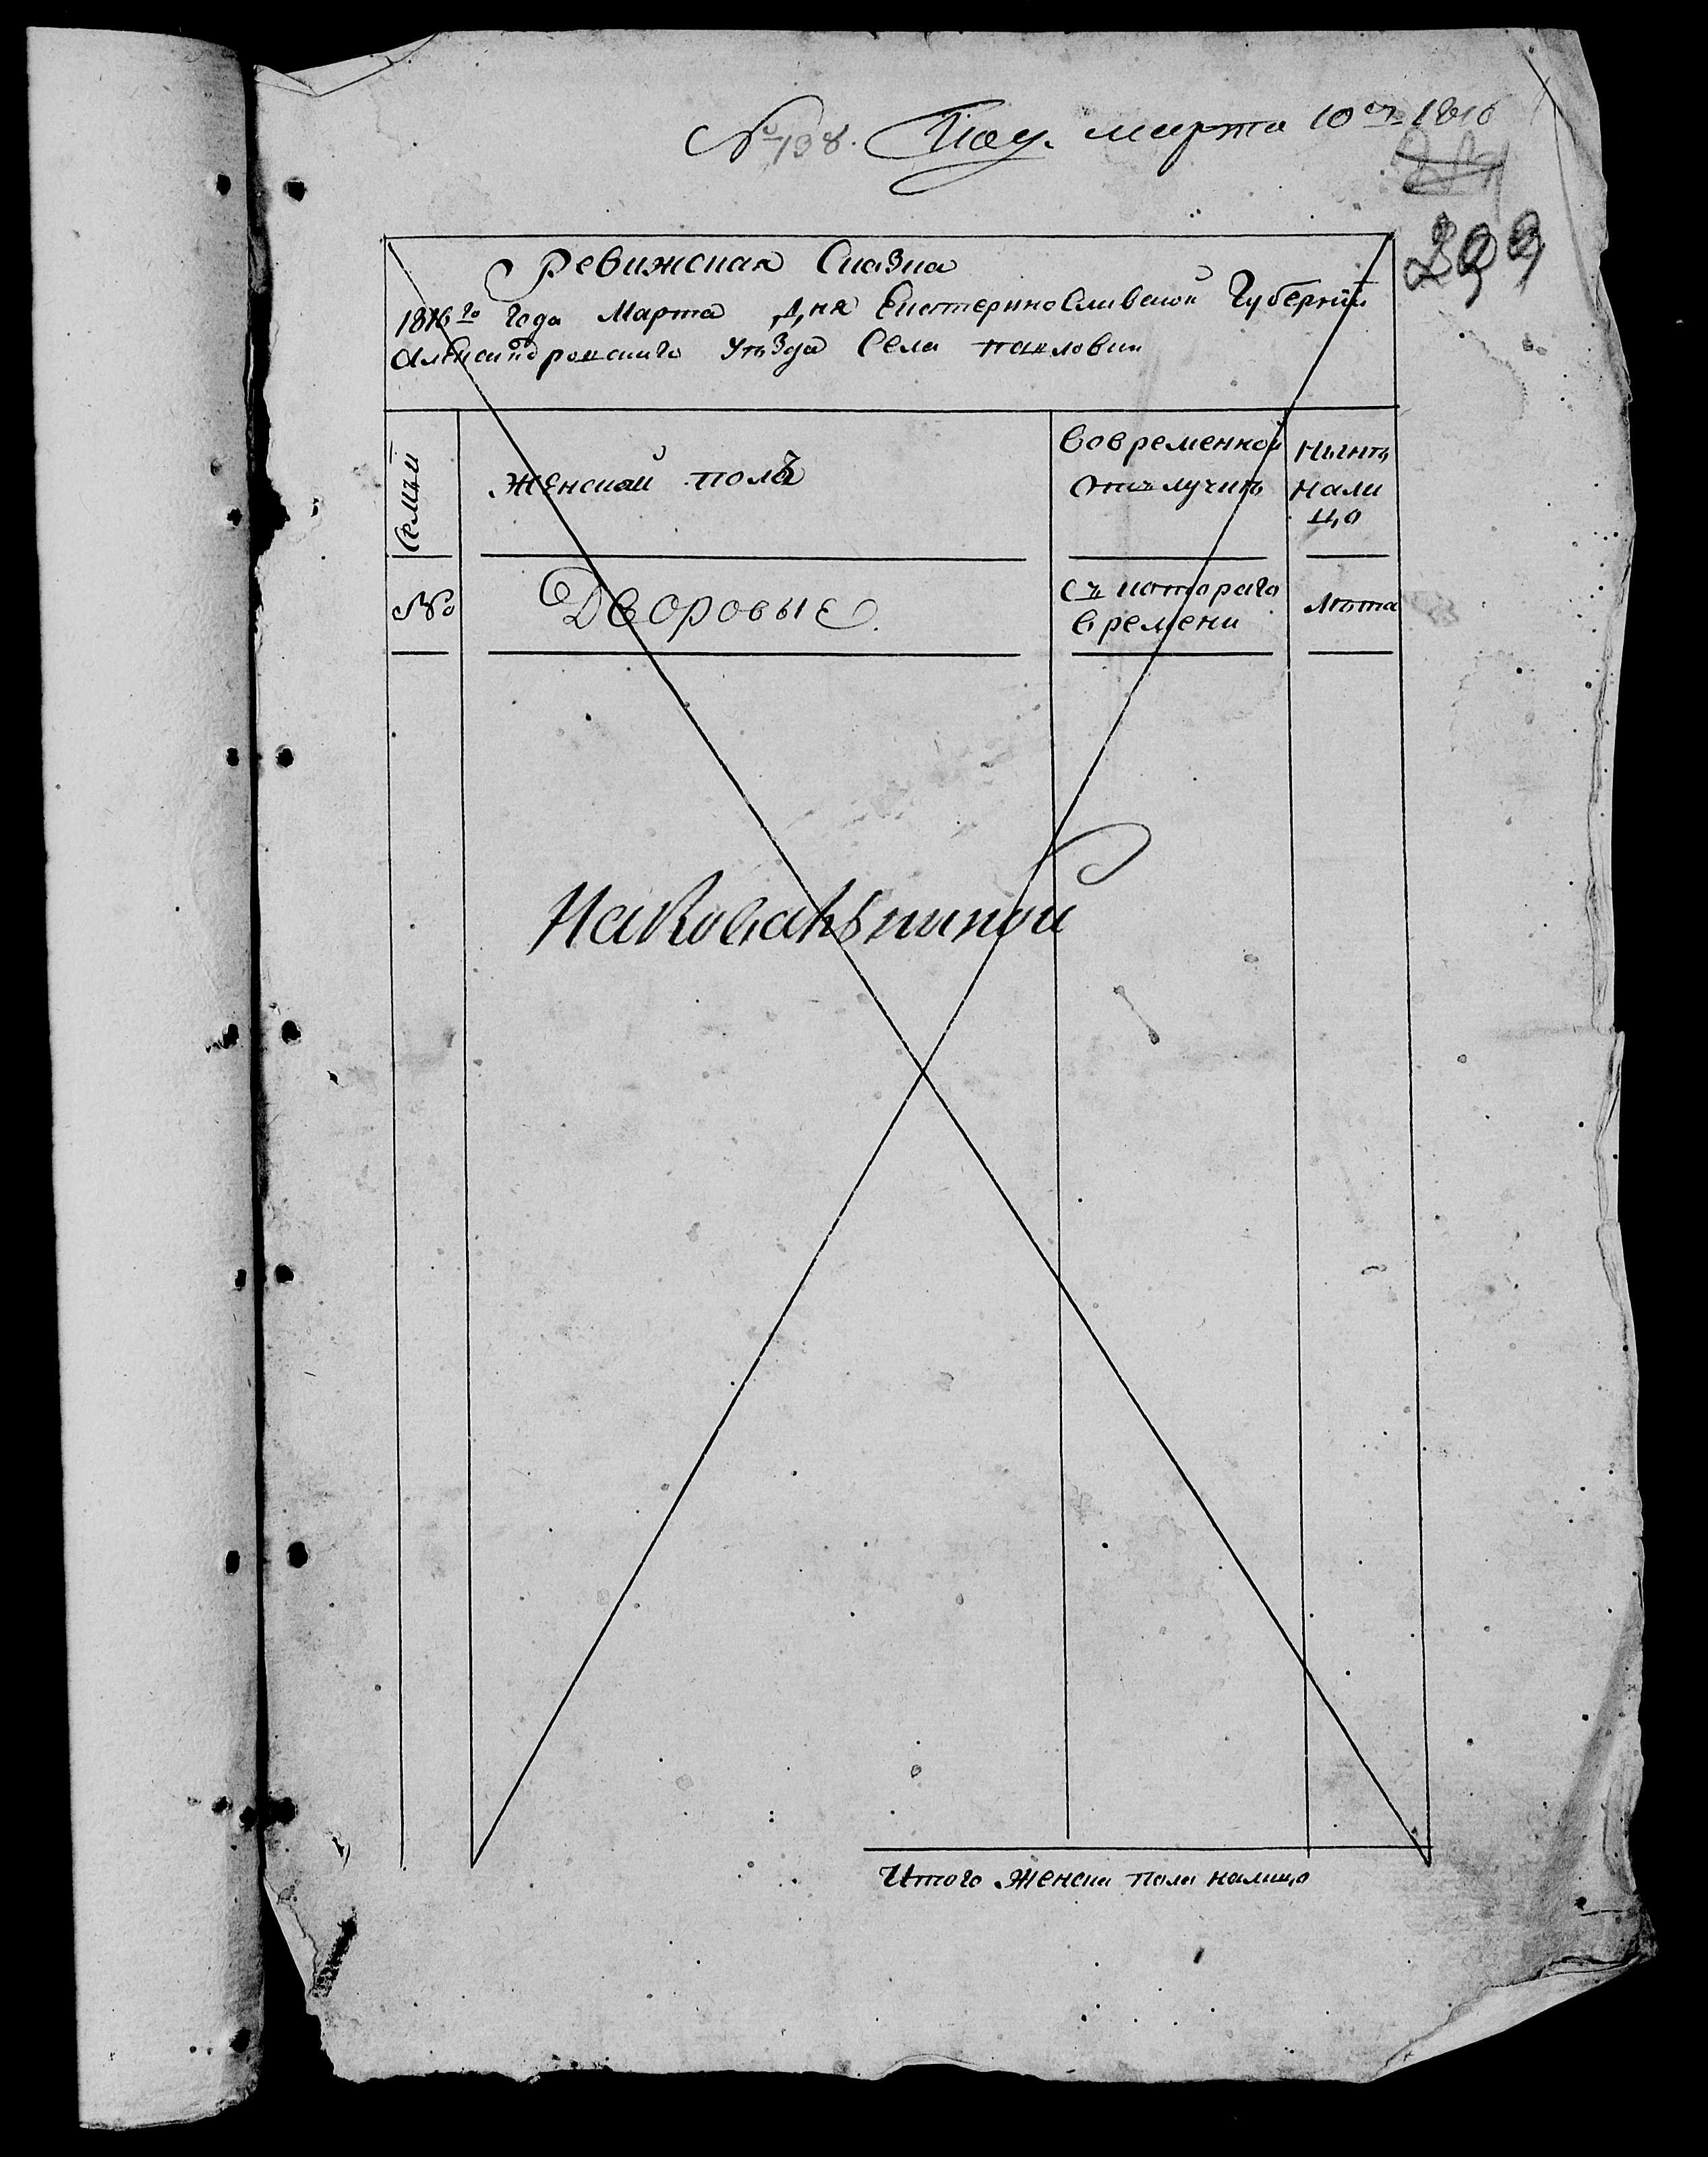 № 138. Под. марта 10го 1816
299
Ревижская Сказка
1816го года Марта дня Екатериносливской Губерніи
Александровскиго уѣзда Села павловки
Семьи
Женский полъ
Вовременной
отлучкѣ
Нынѣ
нали
цо
№
Дворовые.
Съ котораго
времени
лѣта
Итого женска пола налицо